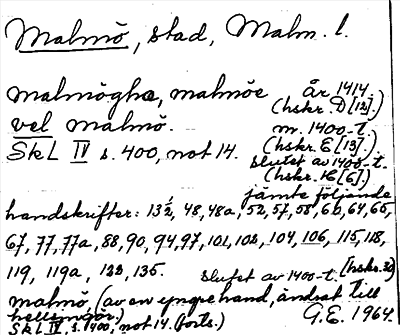 Malmö, stad, Malm. l.
malmöghæ, malmöe år 1414.
(hskr. D [12].)
vel malmö. m. 1400-t.
(hskr. E [13].)
SkL IV s. 400, not 14. slutet av 1400-t.
(hskr. H [6])
jämte följande
handskrifter: 13½, 48, 48a, 52, 57, 58, 6b, 64, 65,
67, 77, 77a, 88, 90, 94, 97, 101, 103, 104, 106, 115, 118,
119, 119a, 123, 135. slutet av 1400-t. (hskr. 32)
malmö, (av en yngre hand, ändrat till
hellsingör.) G.E. 1964.
SkL IV, s. 400, not 14. (forts.)